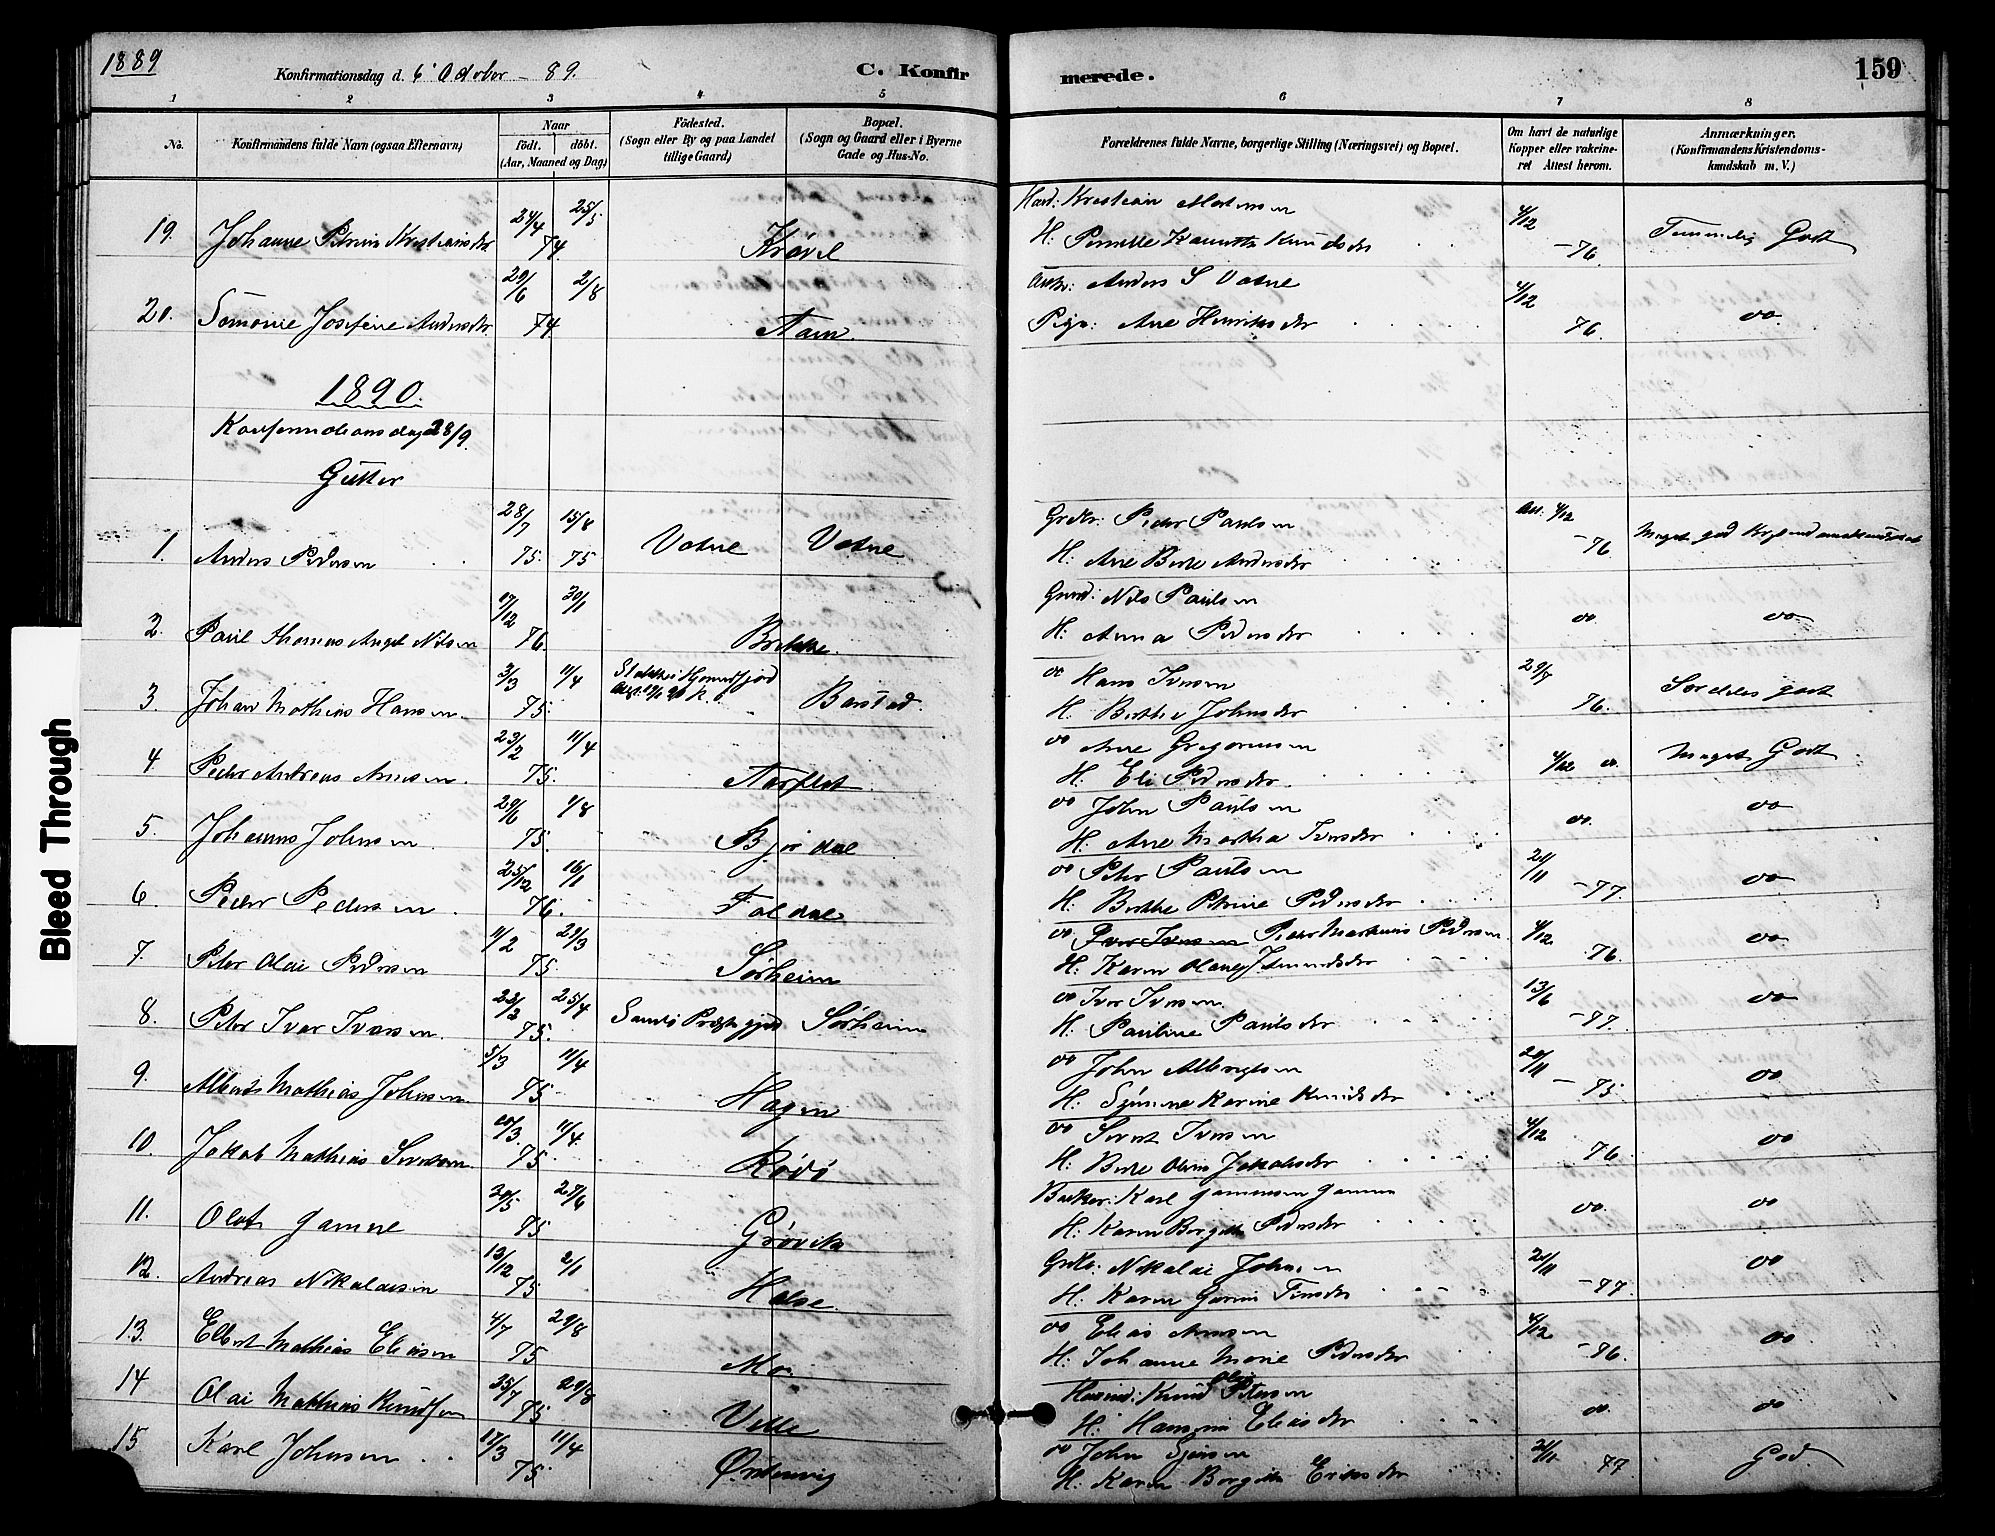 1889
Konfirmationsdag d. 6' October - 89.
C. Konfir
merede.
159
1 2 3 4 5 6 7 8
No.
Konfirmandens fulde Navn (ogsaa Efternavn)
Naar
födt. döbt.
(Aar, Maaned og Dag)
Födested.
(Sogn eller By og paa Landet
tillige Gaard)
Bopæl.
(Sogn og Gaard eller i Byerne
Gade og Hus-No.
Forældrenes fulde Navne, borgerlige Stilling (Næringsvei) og Bopæl.
Om havt de naturlige
Kopper eller vakcine-
ret Attest herom.
Anmærkninger.
(Konfirmandens Kristendoms-
kundskab m. V.)
19. Johanne Petrine Kristiansdr 24/4 74 25/5 Krøvel Kristian Mortensen 4/12
H: Pernille Knudsdr - 76. Temmelig Godt
20. Simonie Josefine Andersdr 29/6 74. 2/8 Aam. Anders S Vatne 4/12
Pige: Ane Henriksdr 76. do
1890.
Konfirmationsdag 28/9.
Gutter
1. Anders Pedersen 28/7 75. 15/8 75 Vatne Vatne Grdbr: Peder Paulsen Att. 4/12
H: Ane Berte Andersdr - 76 Meget god
2. Paul Thomas Angel Nilsen 17/12 76. 30/1 Brekke. Nils Paulsen
H: Anna Pedersdr do. do
3. Johan Mathias Hansen 3/3 75. 11/4 Barstad. do Hans Iversen 29/7
H: Berthe Johnsdr 76. Særdeles godt
4. Peder Andreas Arnesen. 23/2 75. 11/4 Aarflot. do Arne Gregoriussen
H: Eli Pedersdr. 4/12 do. Meget Godt
5. Johannes Johnsen 29/6 75. 1/8 Bjørdal do John Paulsen
H: Ane Martha Iversdr do. do
6. Peder Pedersen 25/12 76. 16/1 Foldal do Peter Paulsen 20/11
H: Berthe Petrine Pedersdr - 77. do
7. Peter Olai Pedersen 11/2 75. 29/3 Sørheim do Iver Iversen Peder Markusis Pedersen 4/12
H: Karen Olave 76. do
8. Peter Iver Iversen. 23/2 75. 25/4 Sandø Præstegjeld Sørheim do Iver Iversen 13/6
H: Pauline Paulsdr - 77. do
9. Albert Mathias Johnsen. 5/3 75 11/4 Hagen do John Albrigtsen 20/11
H: Karine Knudsdr - 75. do
10. Jakob Mathias Sivertsen. 10/3. 75 11/4. Rødø do Sivert Iversen 4/12
H: Berte Oline Jakobsdr 76. do
11. Olaf Gamme 20/5 75 27/6 Grøvik Karl
H: Karen Birgitte Pedersdr do. do
12. Andreas Nikolaisen 13/12 75. 2/1 Halse Nikolai Johnsen 20/11
H: Karen - 77. do
13. Elbert Mathias Eliasen 4/7 75 29/8 Mo. do Elias Arnesen 4/12
H: Johanne Marie Pedersdr - 76. do
14 Olai Mathias Knudsen 25/7 75 29/8 Velle Knud Olai Petersen
H: Hansine Eliasdr do. do
15 Karl Johnsen 17/3 75. 11/4 Østenvig do John
H: Karen Birgitte Eriksdr 20/11 77. God.
Bleed Through